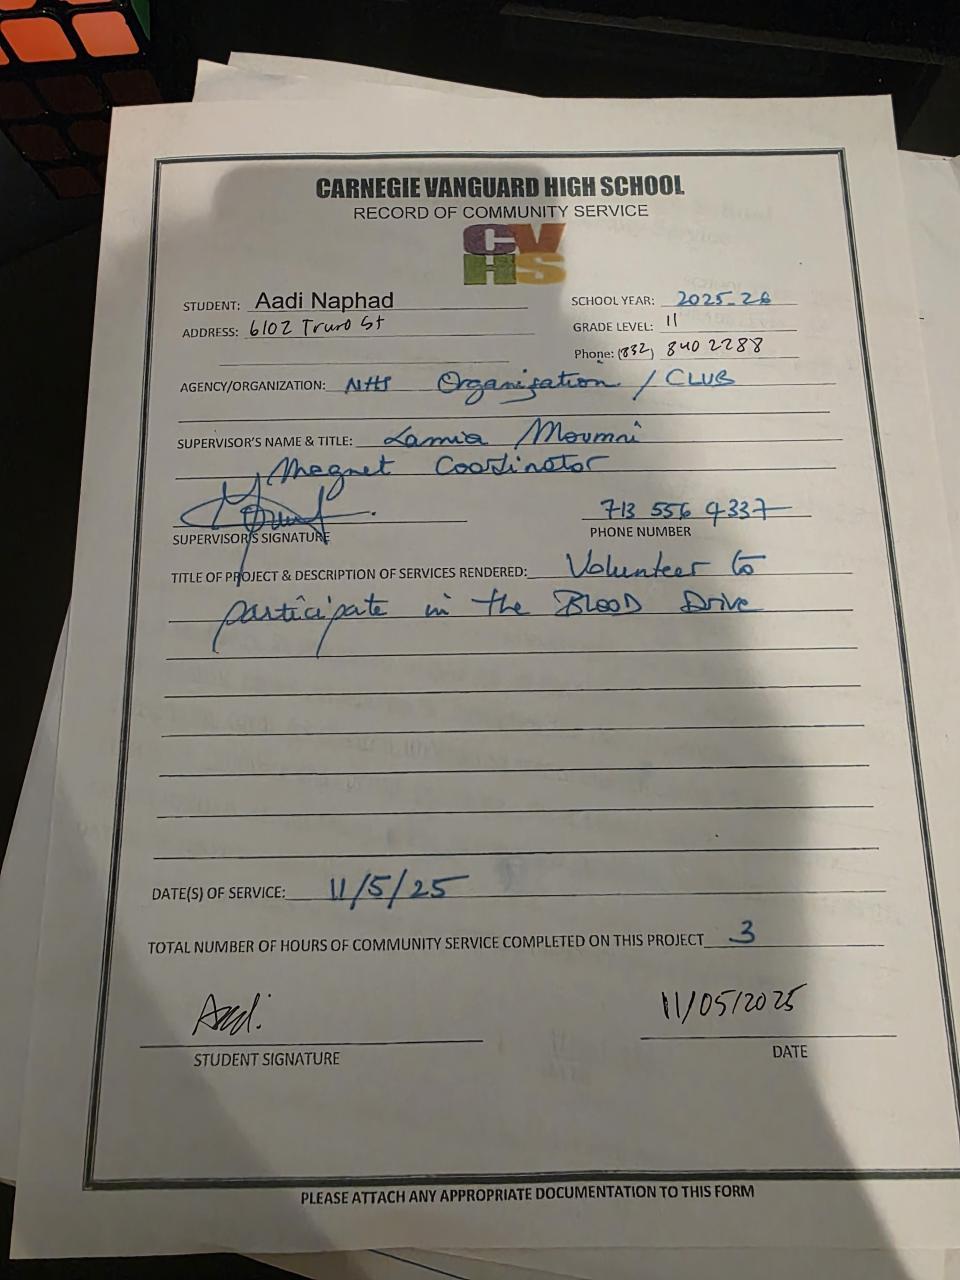 CARNEGIE VANGUARD HIGH SCHOOL
RECORD OF COMMUNITY SERVICE
CV
HS
STUDENT: Aadi Naphad
SCHOOL YEAR: 2025-26
ADDRESS: 6102 Truro St
GRADE LEVEL: 11
Phone: (832) 840 2288
AGENCY/ORGANIZATION: NHS Organization / CLUB
SUPERVISOR'S NAME & TITLE: Lamia Moumni
Magnet Coordinator
713 556 9337
SUPERVISOR'S SIGNATURE
PHONE NUMBER
TITLE OF PROJECT & DESCRIPTION OF SERVICES RENDERED: Volunteer to
participate in the BLOOD Drive
DATE(S) OF SERVICE: 11/5/25
TOTAL NUMBER OF HOURS OF COMMUNITY SERVICE COMPLETED ON THIS PROJECT 3
Aadi.
11/05/2025
STUDENT SIGNATURE
DATE
PLEASE ATTACH ANY APPROPRIATE DOCUMENTATION TO THIS FORM